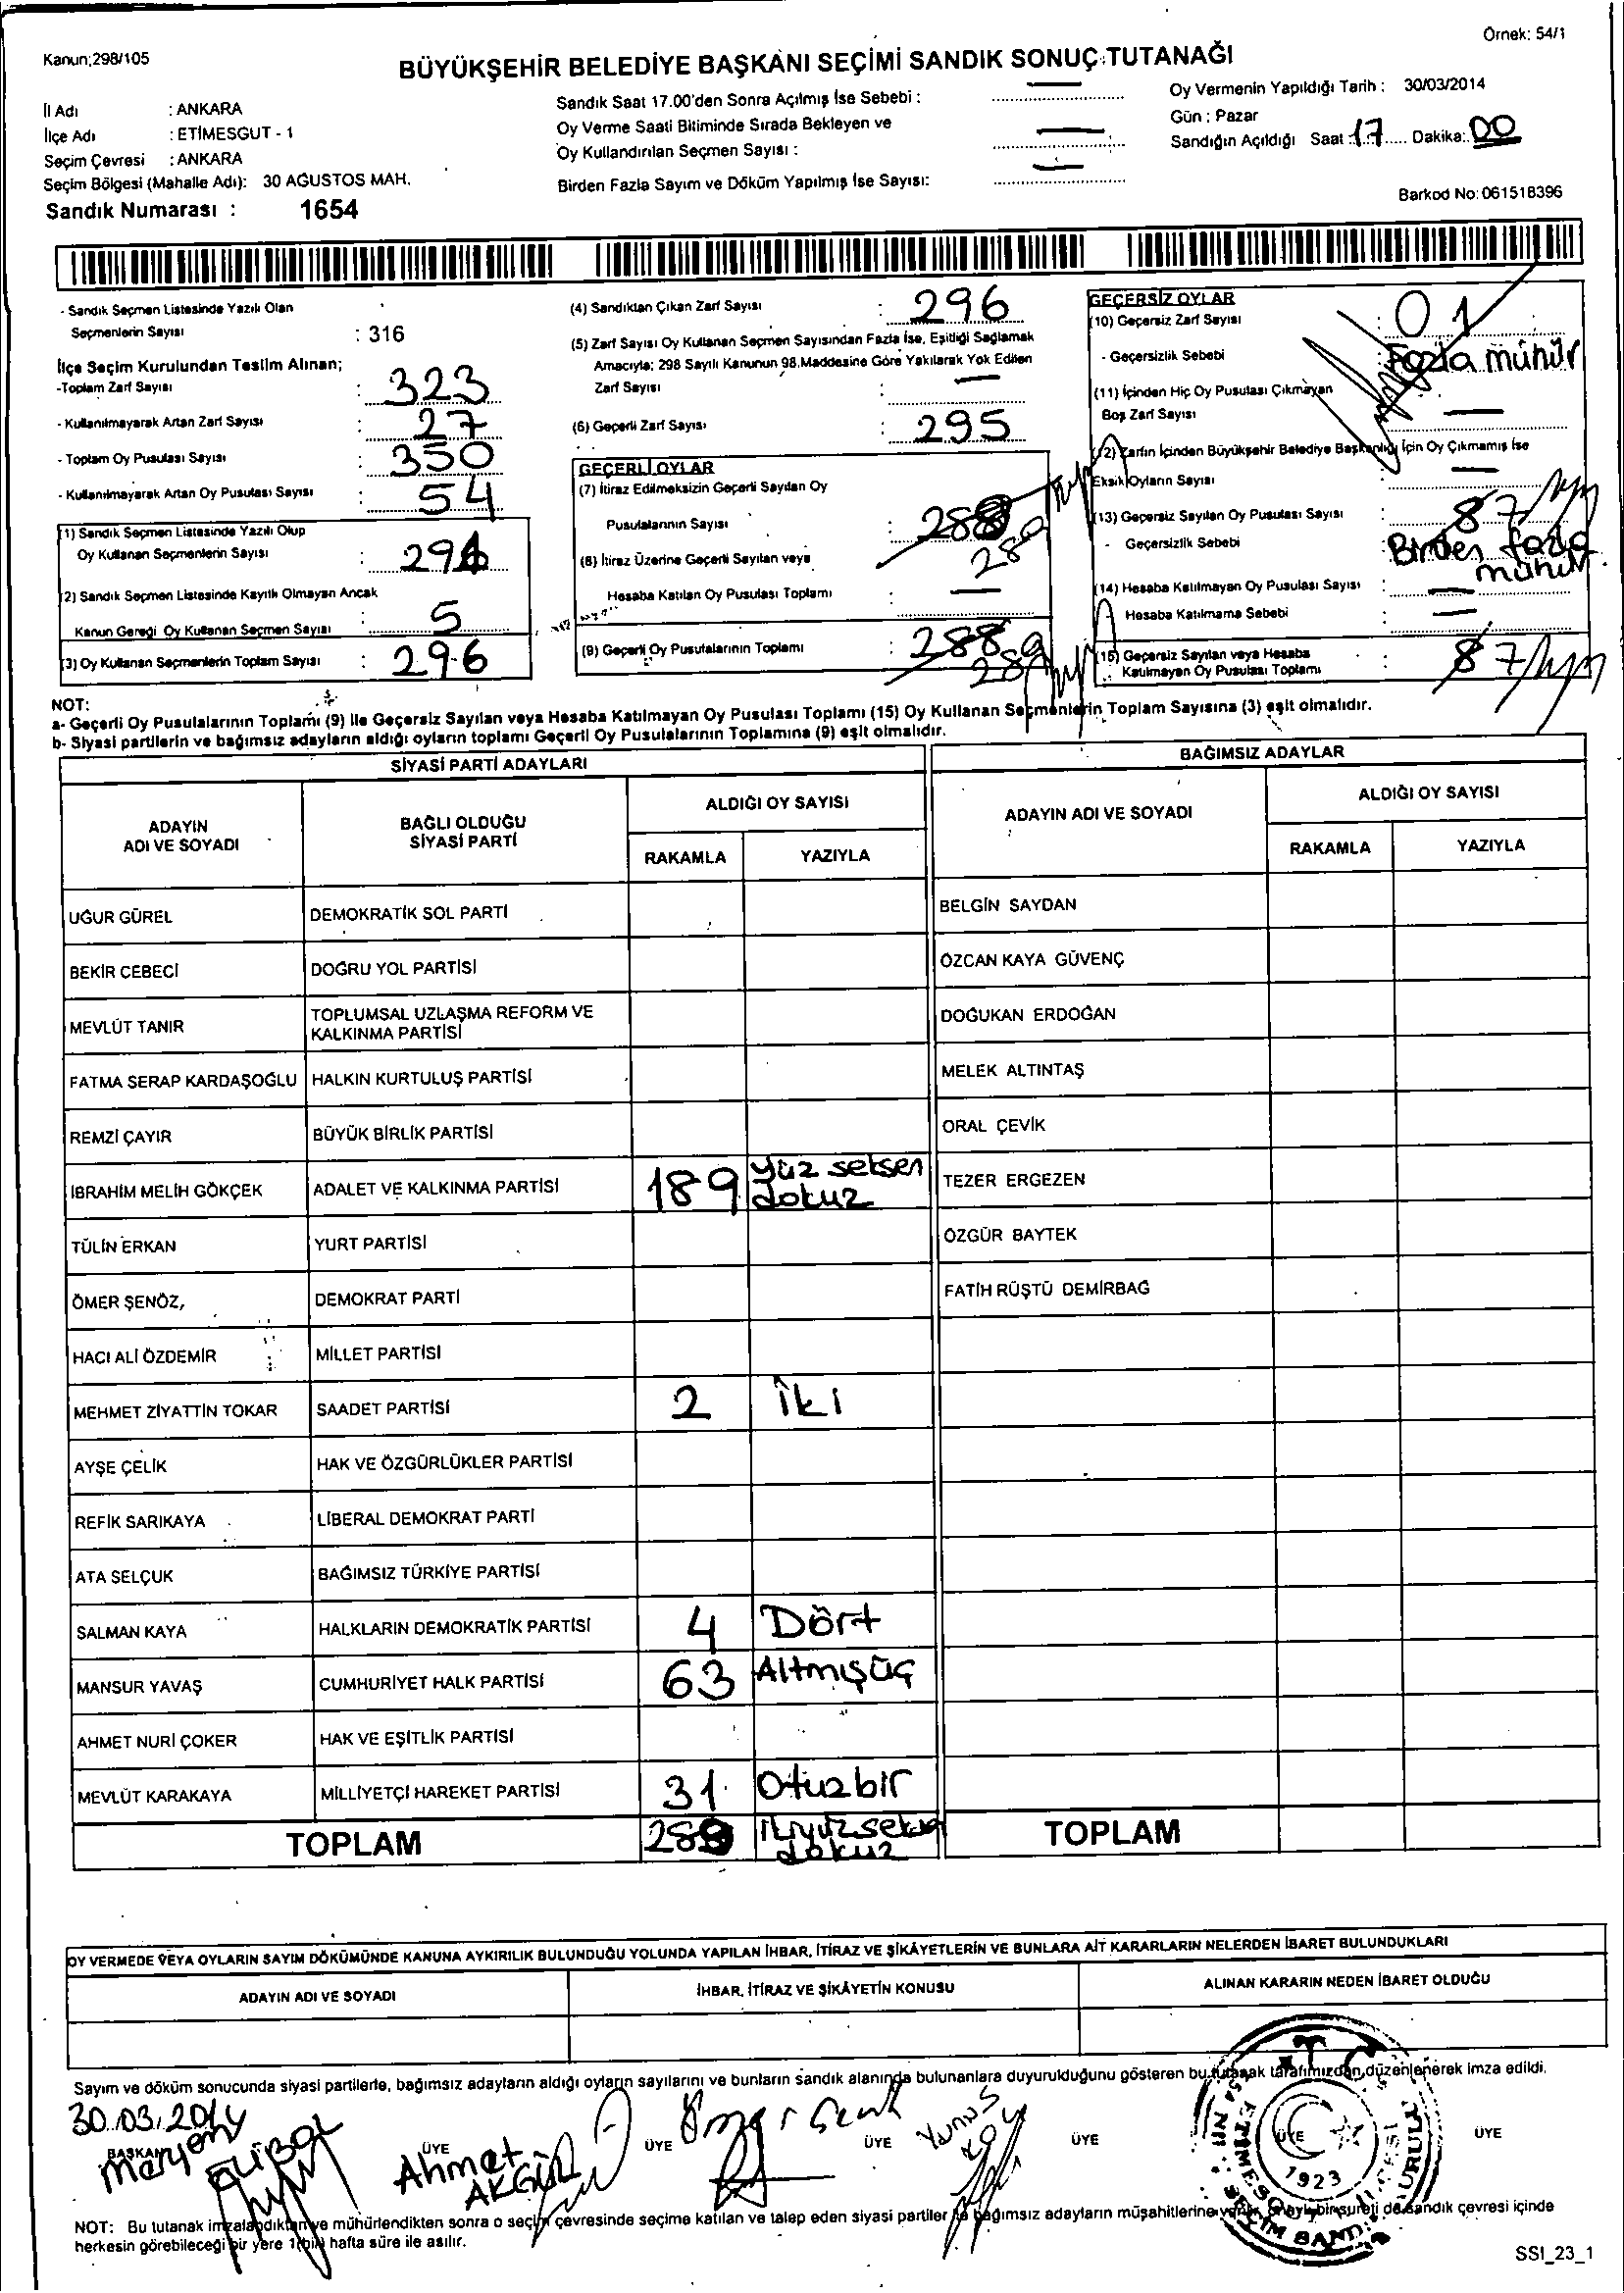 Örnek: 54/1
Kanun;298/105
BÜYÜKŞEHİR BELEDİYE BAŞKANI SEÇİMİ SANDIK SONUÇ TUTANAĞI
İl Adı : ANKARA
İlçe Adı : ETİMESGUT - 1
Seçim Çevresi : ANKARA
Seçim Bölgesi (Mahalle Adı): 30 AĞUSTOS MAH.
Sandık Numarası : 1654
Sandık Saat 17.00'den Sonra Açılmış İse Sebebi : —
Oy Verme Saati Bitiminde Sırada Bekleyen ve
Oy Kullandırılan Seçmen Sayısı : —
Birden Fazla Sayım ve Döküm Yapılmış İse Sayısı: —
Oy Vermenin Yapıldığı Tarih : 30/03/2014
Gün : Pazar
Sandığın Açıldığı Saat : 17 Dakika: 00
Barkod No: 061518396
- Sandık Seçmen Listesinde Yazılı Olan
Seçmenlerin Sayısı : 316
İlçe Seçim Kurulundan Teslim Alınan;
-Toplam Zarf Sayısı : 323
- Kullanılmayarak Artan Zarf Sayısı : 27
- Toplam Oy Pusulası Sayısı : 350
- Kullanılmayarak Artan Oy Pusulası Sayısı : 54
(1) Sandık Seçmen Listesinde Yazılı Olup
Oy Kullanan Seçmenlerin Sayısı :
(2) Sandık Seçmen Listesinde Kayıtlı Olmayan Ancak
Kanun Gereği Oy Kullanan Seçmen Sayısı : 5
(3) Oy Kullanan Seçmenlerin Toplam Sayısı : 296
(4) Sandıktan Çıkan Zarf Sayısı : 296
(5) Zarf Sayısı Oy Kullanan Seçmen Sayısından Fazla İse, Eşitliği Sağlamak
Amacıyla; 298 Sayılı Kanunun 98.Maddesine Göre Yakılarak Yok Edilen
Zarf Sayısı : —
(6) Geçerli Zarf Sayısı : 295
GEÇERLİ OYLAR
(7) İtiraz Edilmeksizin Geçerli Sayılan Oy
Pusulalarının Sayısı : 288
289
(8) İtiraz Üzerine Geçerli Sayılan veya
Hesaba Katılan Oy Pusulası Toplamı : —
(9) Geçerli Oy Pusulalarının Toplamı : 288
289
GEÇERSİZ OYLAR
(10) Geçersiz Zarf Sayısı : 01
- Geçersizlik Sebebi : Fazla mühür
(11) İçinden Hiç Oy Pusulası Çıkmayan
Boş Zarf Sayısı : —
(12) Zarfın İçinden Büyükşehir Belediye Başkanlığı İçin Oy Çıkmamış İse
Eksik Oyların Sayısı : —
(13) Geçersiz Sayılan Oy Pusulası Sayısı : 87
- Geçersizlik Sebebi : Birden fazla
mühür
(14) Hesaba Katılmayan Oy Pusulası Sayısı : —
Hesaba Katılmama Sebebi : —
(15) Geçersiz Sayılan veya Hesaba
Katılmayan Oy Pusulası Toplamı : 87
NOT:
a- Geçerli Oy Pusulalarının Toplamı (9) ile Geçersiz Sayılan veya Hesaba Katılmayan Oy Pusulası Toplamı (15) Oy Kullanan Seçmenlerin Toplam Sayısına (3) eşit olmalıdır.
b- Siyasi partilerin ve bağımsız adayların aldığı oyların toplamı Geçerli Oy Pusulalarının Toplamına (9) eşit olmalıdır.
SİYASİ PARTİ ADAYLARI
BAĞIMSIZ ADAYLAR
ADAYIN
ADI VE SOYADI
BAĞLI OLDUĞU
SİYASİ PARTİ
ALDIĞI OY SAYISI
RAKAMLA YAZIYLA
ADAYIN ADI VE SOYADI
ALDIĞI OY SAYISI
RAKAMLA YAZIYLA
UĞUR GÜREL DEMOKRATİK SOL PARTİ BELGİN SAYDAN
BEKİR CEBECİ DOĞRU YOL PARTİSİ ÖZCAN KAYA GÜVENÇ
MEVLÜT TANIR TOPLUMSAL UZLAŞMA REFORM VE
KALKINMA PARTİSİ DOĞUKAN ERDOĞAN
FATMA SERAP KARDAŞOĞLU HALKIN KURTULUŞ PARTİSİ MELEK ALTINTAŞ
REMZİ ÇAYIR BÜYÜK BİRLİK PARTİSİ ORAL ÇEVİK
İBRAHİM MELİH GÖKÇEK ADALET VE KALKINMA PARTİSİ 189 yüz seksen
dokuz TEZER ERGEZEN
TÜLİN ERKAN YURT PARTİSİ ÖZGÜR BAYTEK
ÖMER ŞENÖZ, DEMOKRAT PARTİ FATİH RÜŞTÜ DEMİRBAĞ
HACI ALİ ÖZDEMİR MİLLET PARTİSİ
MEHMET ZİYATTİN TOKAR SAADET PARTİSİ 2 İki
AYŞE ÇELİK HAK VE ÖZGÜRLÜKLER PARTİSİ
REFİK SARIKAYA LİBERAL DEMOKRAT PARTİ
ATA SELÇUK BAĞIMSIZ TÜRKİYE PARTİSİ
SALMAN KAYA HALKLARIN DEMOKRATİK PARTİSİ 4 Dört
MANSUR YAVAŞ CUMHURİYET HALK PARTİSİ 63 Altmışüç
AHMET NURİ ÇOKER HAK VE EŞİTLİK PARTİSİ
MEVLÜT KARAKAYA MİLLİYETÇİ HAREKET PARTİSİ 31 Otuzbir
TOPLAM 289 dokuz TOPLAM
OY VERMEDE VEYA OYLARIN SAYIM DÖKÜMÜNDE KANUNA AYKIRILIK BULUNDUĞU YOLUNDA YAPILAN İHBAR, İTİRAZ VE ŞİKÂYETLERİN VE BUNLARA AİT KARARLARIN NELERDEN İBARET BULUNDUKLARI
ADAYIN ADI VE SOYADI İHBAR, İTİRAZ VE ŞİKÂYETİN KONUSU ALINAN KARARIN NEDEN İBARET OLDUĞU
Sayım ve döküm sonucunda siyasi partilerle, bağımsız adayların aldığı oyların sayılarını ve bunların sandık alanında bulunanlara duyurulduğunu gösteren bu tutanak tarafımızdan düzenlenerek imza edildi.
30.03.2014
BAŞKAN ÜYE ÜYE ÜYE ÜYE ÜYE ÜYE
Meryem
Ahmet
AKGÜL
Yunus
KOÇ
1923
NOT: Bu tutanak imzalandıktan ve mühürlendikten sonra o seçim çevresinde seçime katılan ve talep eden siyasi partiler ile bağımsız adayların müşahitlerine verilir, onaylı bir sureti de sandık çevresi içinde
herkesin görebileceği bir yere 1(bir) hafta süre ile asılır.
SSI_23_1